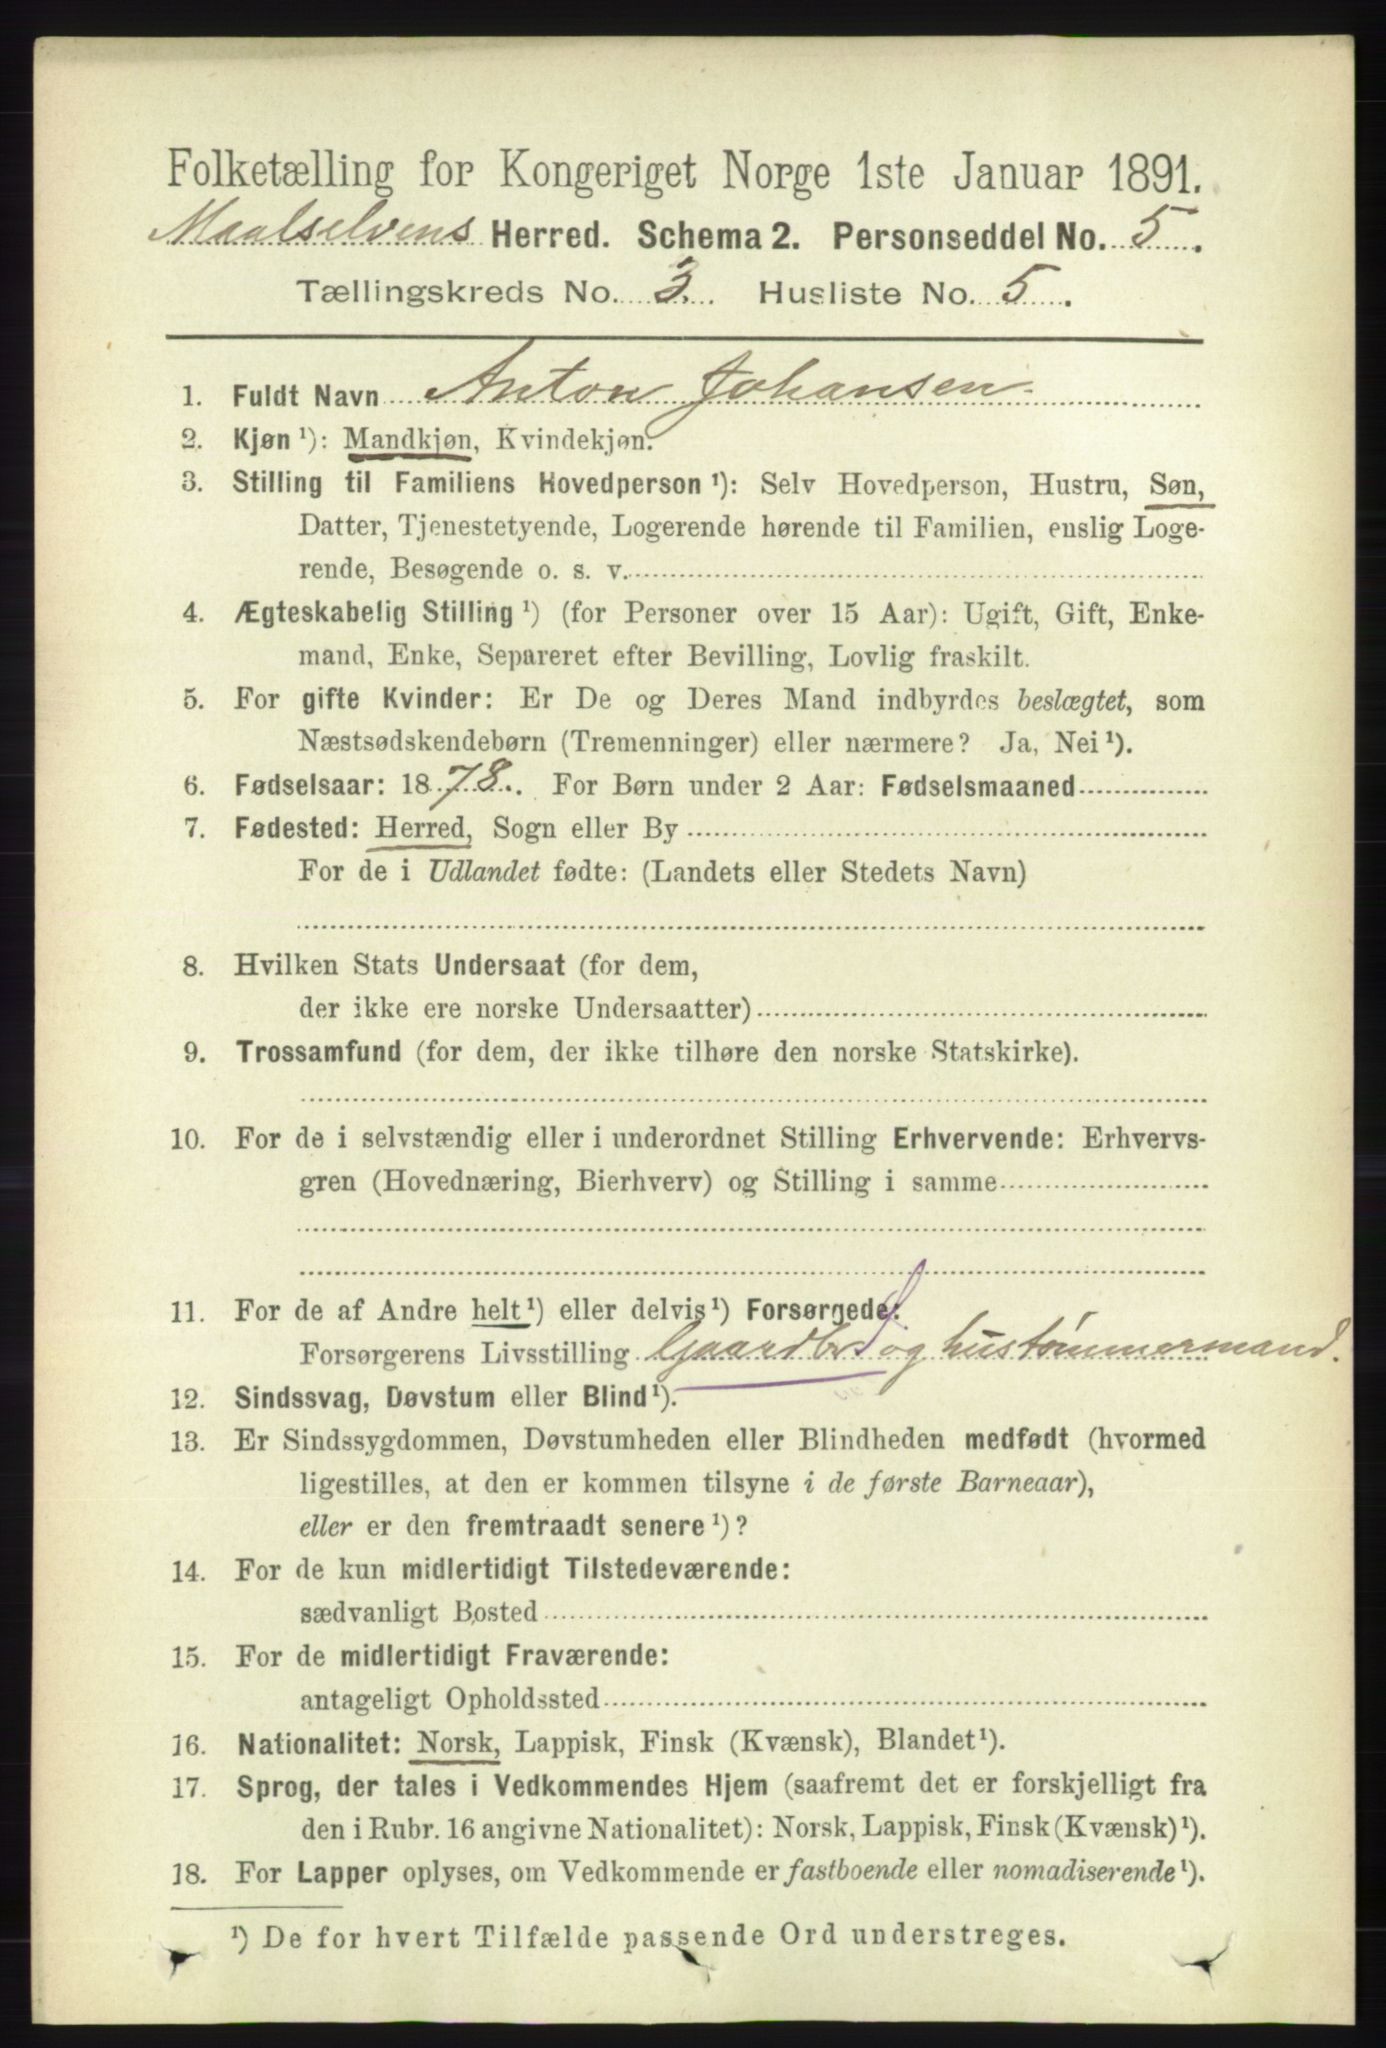 Folketælling for Kongeriget Norge 1ste Januar 1891.
Maalselvens Herred. Schema 2. Personseddel No. 5.
Tællingskreds No. 3. Husliste No. 5.
1. Fuldt Navn Anton Johansen
2. Kjøn ¹): Mandkjøn, Kvindekjøn.
3. Stilling til Familiens Hovedperson ¹): Selv Hovedperson, Hustru, Søn,
Datter, Tjenestetyende, Logerende hørende til Familien, enslig Loge-
rende, Besøgende o. s. v.
4. Ægteskabelig Stilling ¹) (for Personer over 15 Aar): Ugift, Gift, Enke-
mand, Enke, Separeret efter Bevilling, Lovlig fraskilt.
5. For gifte Kvinder: Er De og Deres Mand indbyrdes beslægtet, som
Næstsødskendebørn (Tremenninger) eller nærmere? Ja, Nei ¹).
6. Fødselsaar: 1878. For Børn under 2 Aar: Fødselsmaaned
7. Fødested: Herred, Sogn eller By
For de i Udlandet fødte: (Landets eller Stedets Navn)
8. Hvilken Stats Undersaat (for dem,
der ikke ere norske Undersaatter)
9. Trossamfund (for dem, der ikke tilhøre den norske Statskirke).
10. For de i selvstændig eller i underordnet Stilling Erhvervende: Erhvervs-
gren (Hovednæring, Bierhverv) og Stilling i samme
11. For de af Andre helt ¹) eller delvis ¹) Forsørgede:
Forsørgerens Livsstilling Gaardbr. og hustømmermand.
12. Sindssvag, Døvstum eller Blind ¹).
13. Er Sindssygdommen, Døvstumheden eller Blindheden medfødt (hvormed
ligestilles, at den er kommen tilsyne i de første Barneaar),
eller er den fremtraadt senere ¹)?
14. For de kun midlertidigt Tilstedeværende:
sædvanligt Bosted
15. For de midlertidigt Fraværende:
antageligt Opholdssted
16. Nationalitet: Norsk, Lappisk, Finsk (Kvænsk), Blandet ¹).
17. Sprog, der tales i Vedkommendes Hjem (saafremt det er forskjelligt fra
den i Rubr. 16 angivne Nationalitet): Norsk, Lappisk, Finsk (Kvænsk) ¹).
18. For Lapper oplyses, om Vedkommende er fastboende eller nomadiserende ¹).
¹) De for hvert Tilfælde passende Ord understreges.